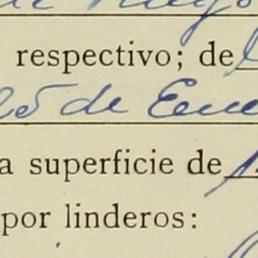 respectivo; de
25 de Ene
a superficie de
por linderos: